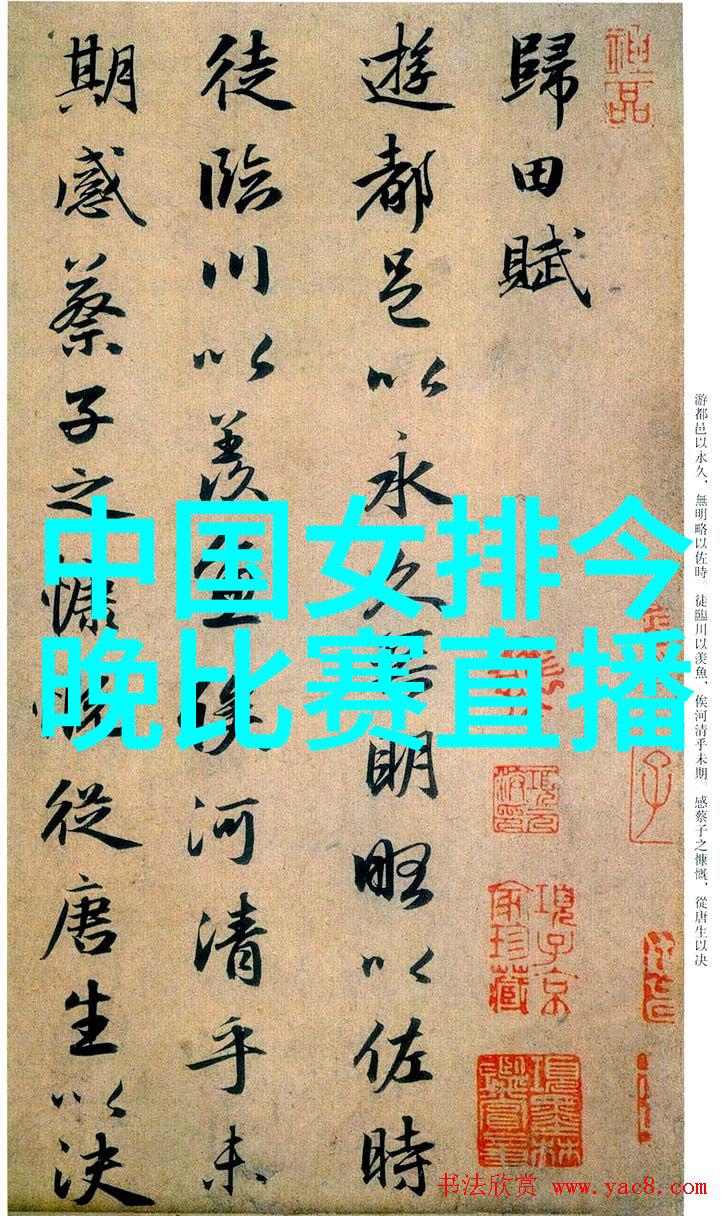 歸田賦
遊都邑以永久無明略以佐時
徒臨川以羨魚俟河清乎未
期感蔡子之慷慨從唐生以決
中国女排今
晚比赛直播
游都邑以永久，無明略以佐時。徒臨川以羨魚，俟河清乎未期。感蔡子之慷慨，從唐生以決
項子京家珍藏
书法欣赏 www.yac8.com